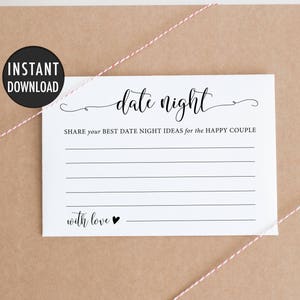 INSTANT
DOWNLOAD
date night
SHARE your BEST DATE NIGHT IDEAS for the HAPPY COUPLE
with love